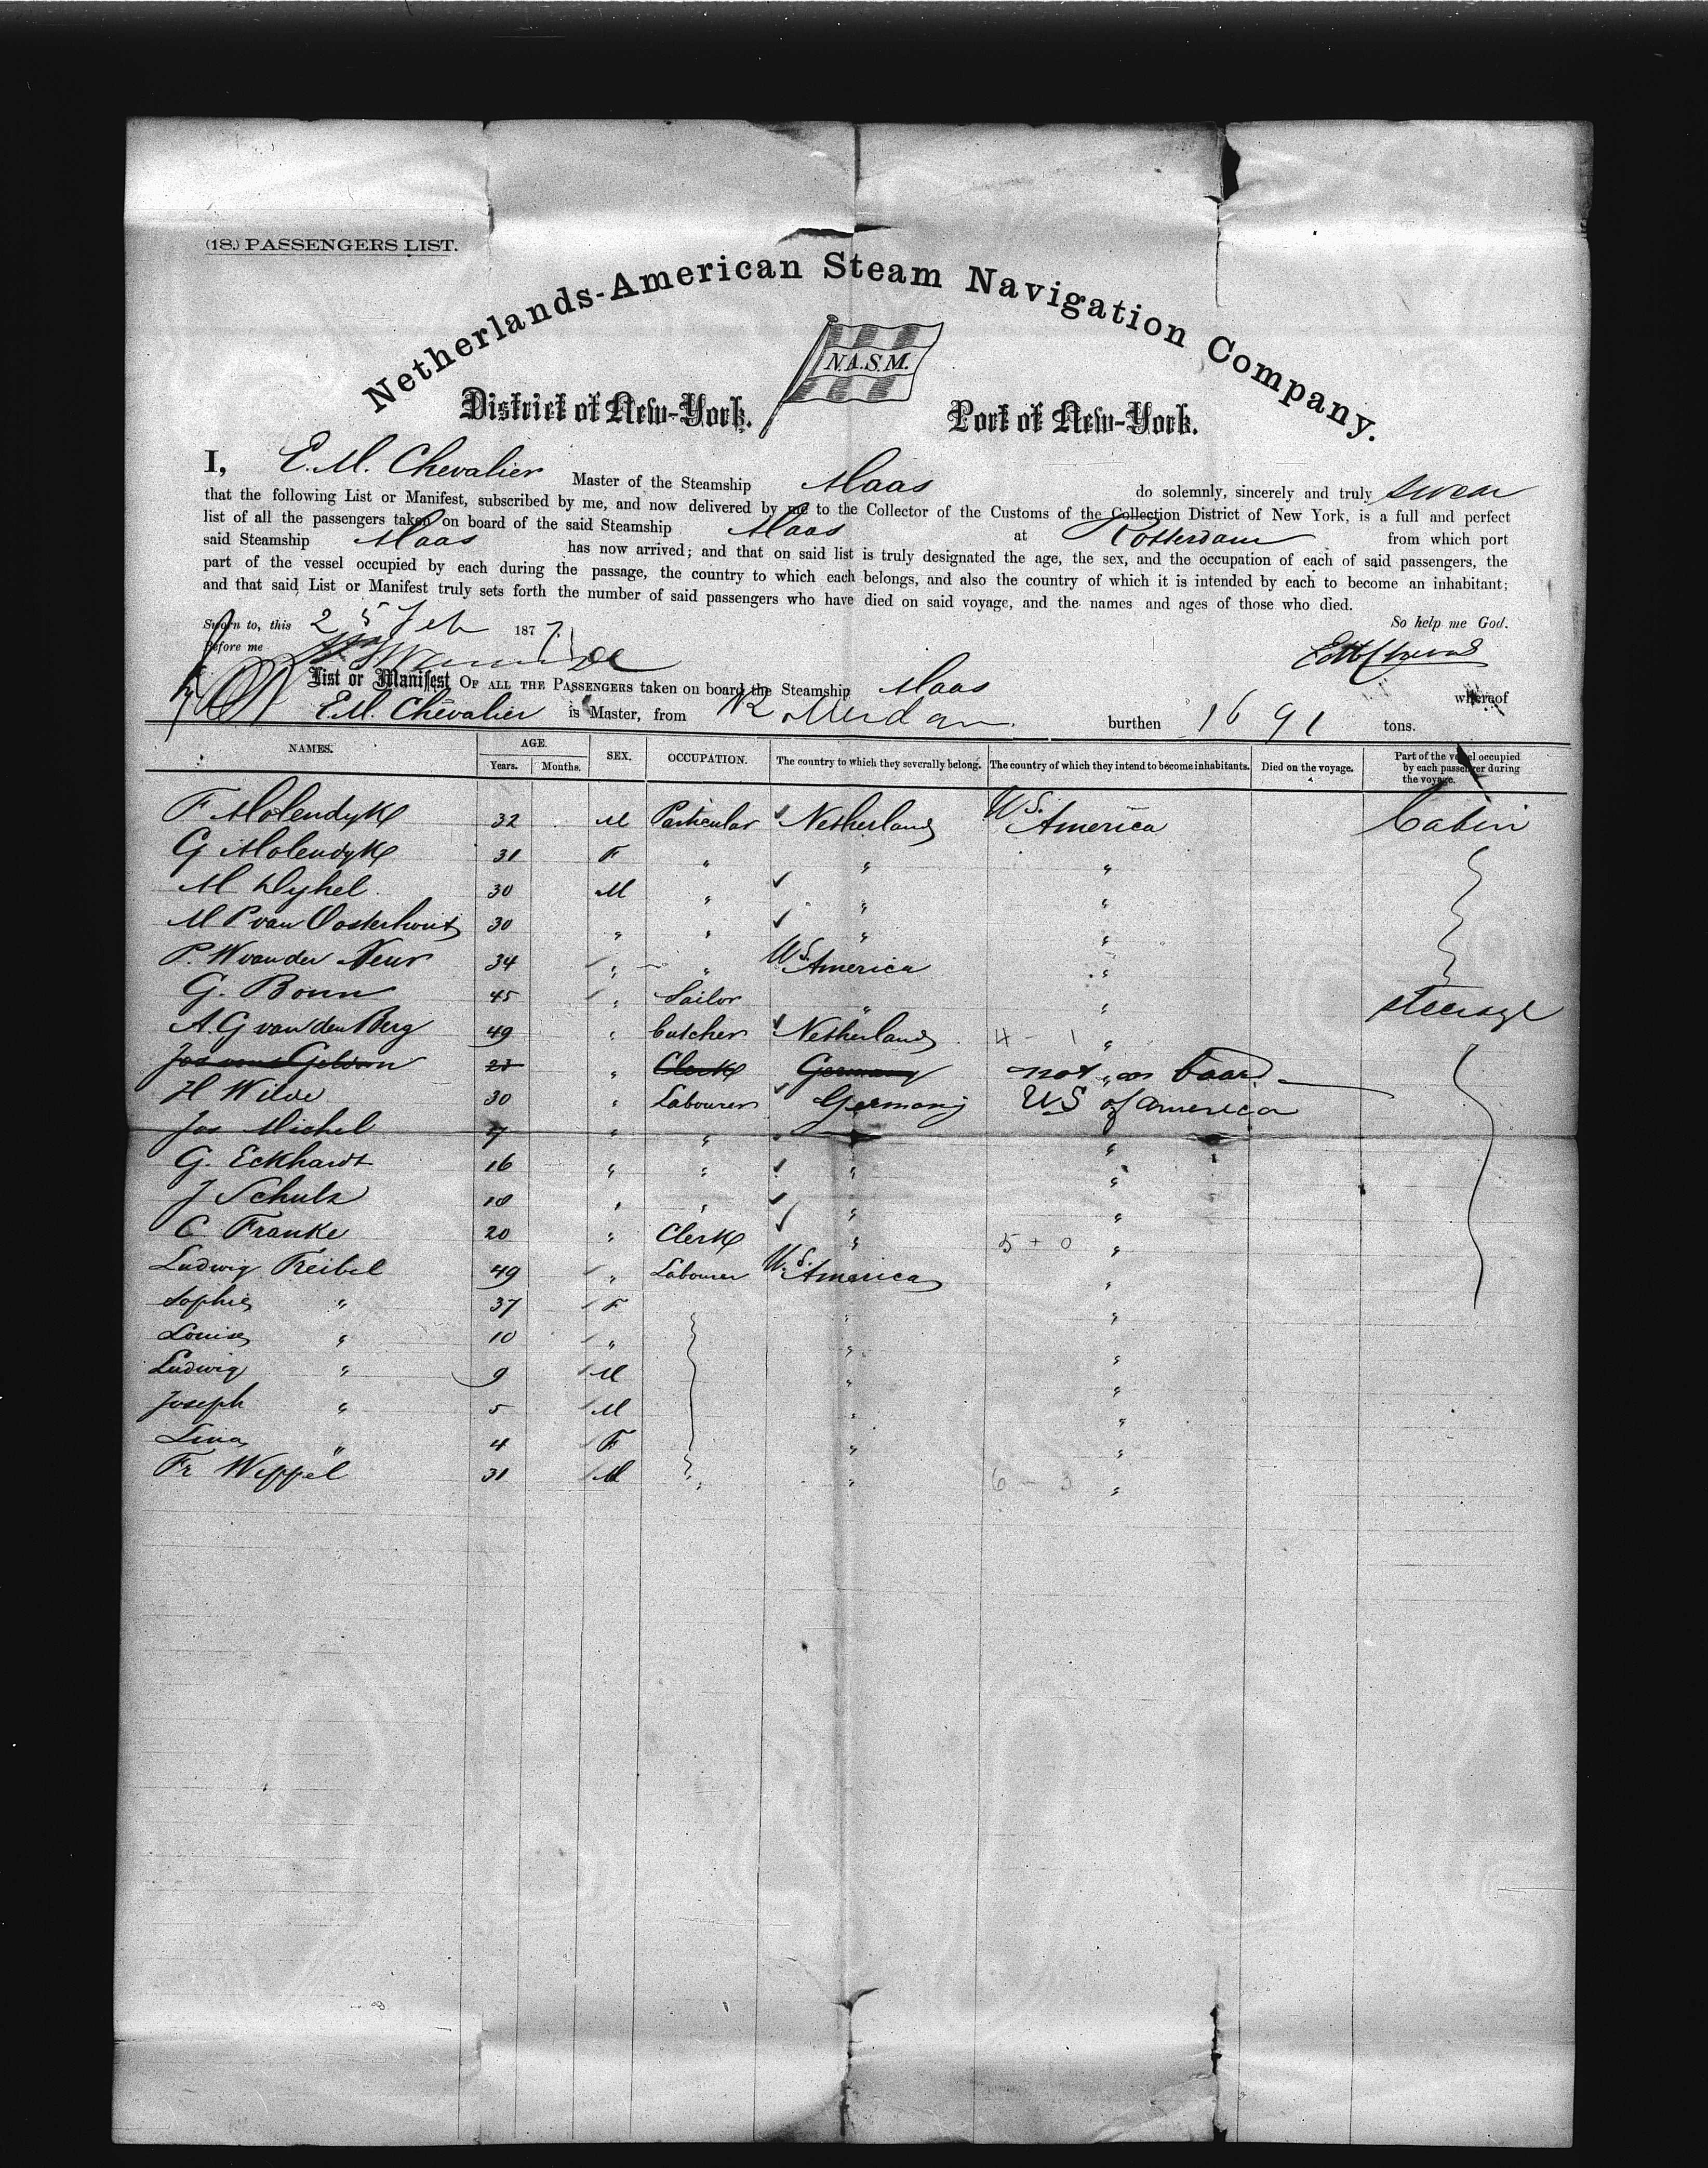 (18.) PASSENGERS LIST.
Netherlands-American Steam Navigation Company.
N.A.S.M.
District of New-York. Port of New-York.
I, E.M. Chevalier Master of the Steamship Maas do solemnly, sincerely and truly swear
that the following List or Manifest, subscribed by me, and now delivered by me to the Collector of the Customs of the Collection District of New York, is a full and perfect
list of all the passengers taken on board of the said Steamship Maas at Rotterdam from which port
said Steamship Maas has now arrived; and that on said list is truly designated the age, the sex, and the occupation of each of said passengers, the
part of the vessel occupied by each during the passage, the country to which each belongs, and also the country of which it is intended by each to become an inhabitant;
and that said List or Manifest truly sets forth the number of said passengers who have died on said voyage, and the names and ages of those who died.
Sworn to, this 25 Feb 1877 So help me God.
Before me
List or Manifest OF ALL THE PASSENGERS taken on board the Steamship Maas whereof
E.M. Chevalier is Master, from Rotterdam burthen 1691 tons.
NAMES. AGE. SEX. OCCUPATION. The country to which they severally belong. The country of which they intend to become inhabitants. Died on the voyage. Part of the vessel occupied by each passenger during the voyage.
Years. Months.
F Molendyk 32 M Particular Netherland US. America Cabin
G Molendyk 31 F " " "
M Dykel 30 M " " "
M P van Oosterhout 30 " " " "
P. W van der 34 " " US. America "
G. Bonn 45 " Sailor " " steerage
A. G van den Berg 49 " butcher Netherland 4 - 1 "
Jos van Geldern 21 " Clerk Germany not " on board
H Wilde 30 " Labourer Germany US of America
Jos Michel 17 " " " "
G. Eckhardt 16 " " " "
J Schulz 18 " " " "
C Franke 20 " Clerk " 5 + 0 "
Ludwig Treibel 49 " Labourer US. America "
Sophie " 37 F " "
Louise " 10 " " "
Ludwig " 9 M " "
Joseph " 5 M " "
Lina " 4 F " "
Fr Wippel 31 M " " 6 - 3 "